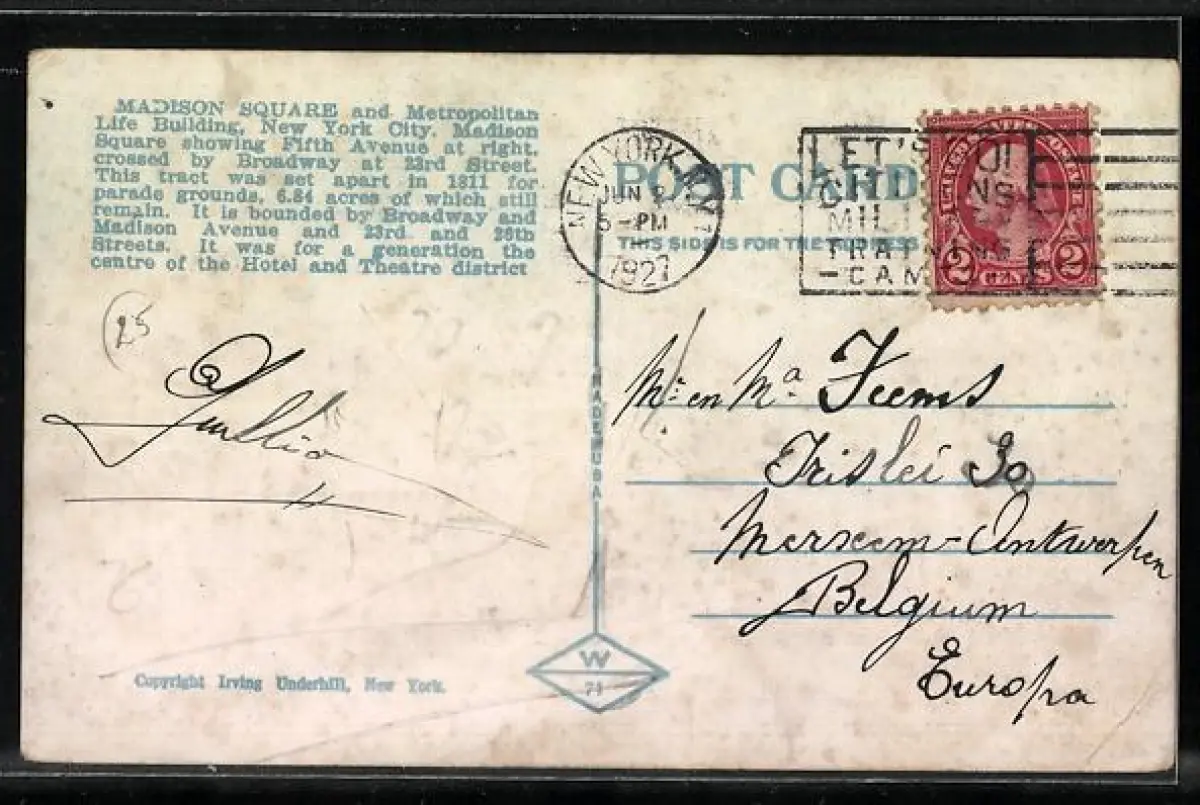 MADISON SQUARE and Metropolitan
Life Building, New York City. Madison
Square showing Fifth Avenue at right,
crossed by Broadway at 23rd Street.
This tract was set apart in 1811 for
parade grounds, 6.84 acres of which still
remain. It is bounded by Broadway and
Madison Avenue and 23rd and 26th
Streets. It was for a generation the
centre of the Hotel and Theatre district
25
Copyright Irving Underhill, New York.
MADE IN USA
W
71
POST CARD
THIS SIDE IS FOR THE ADDRESS
NEW YORK, N.Y.
JUN
5-PM
1927
LET'S
MILI
TRAINING
CAM
2 CENTS 2
Mr en Ma Feems
Merxem-Antwerpen
Belgium
Europa